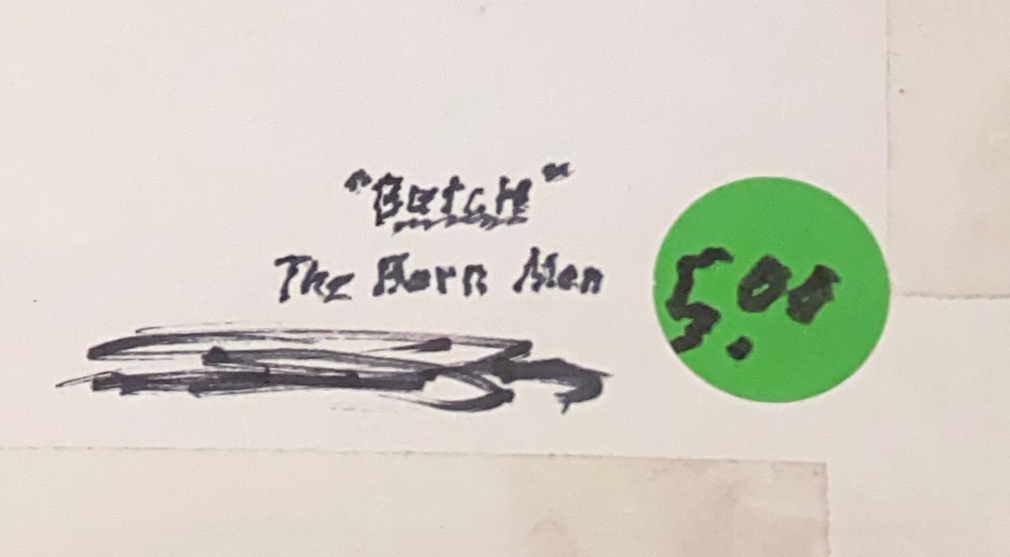 "Butch"
The Horn Man
5.00